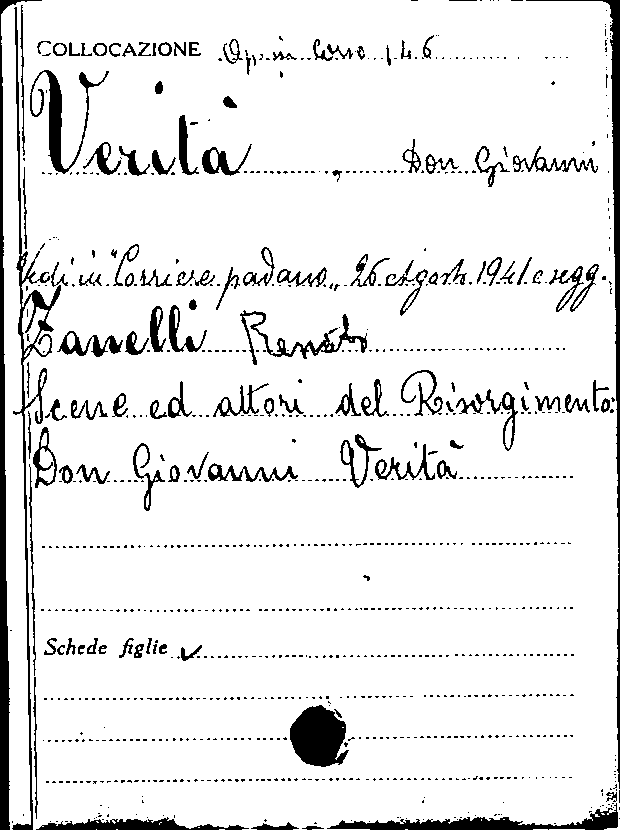 COLLOCAZIONE Op. in Corso 146
Verità, Don Giovanni
Vedi in "Corriere padano„ 26 Agosto 1941 e segg.
Zanelli Renato
Scene ed attori del Risorgimento:
Don Giovanni Verità
Schede figlie ✓